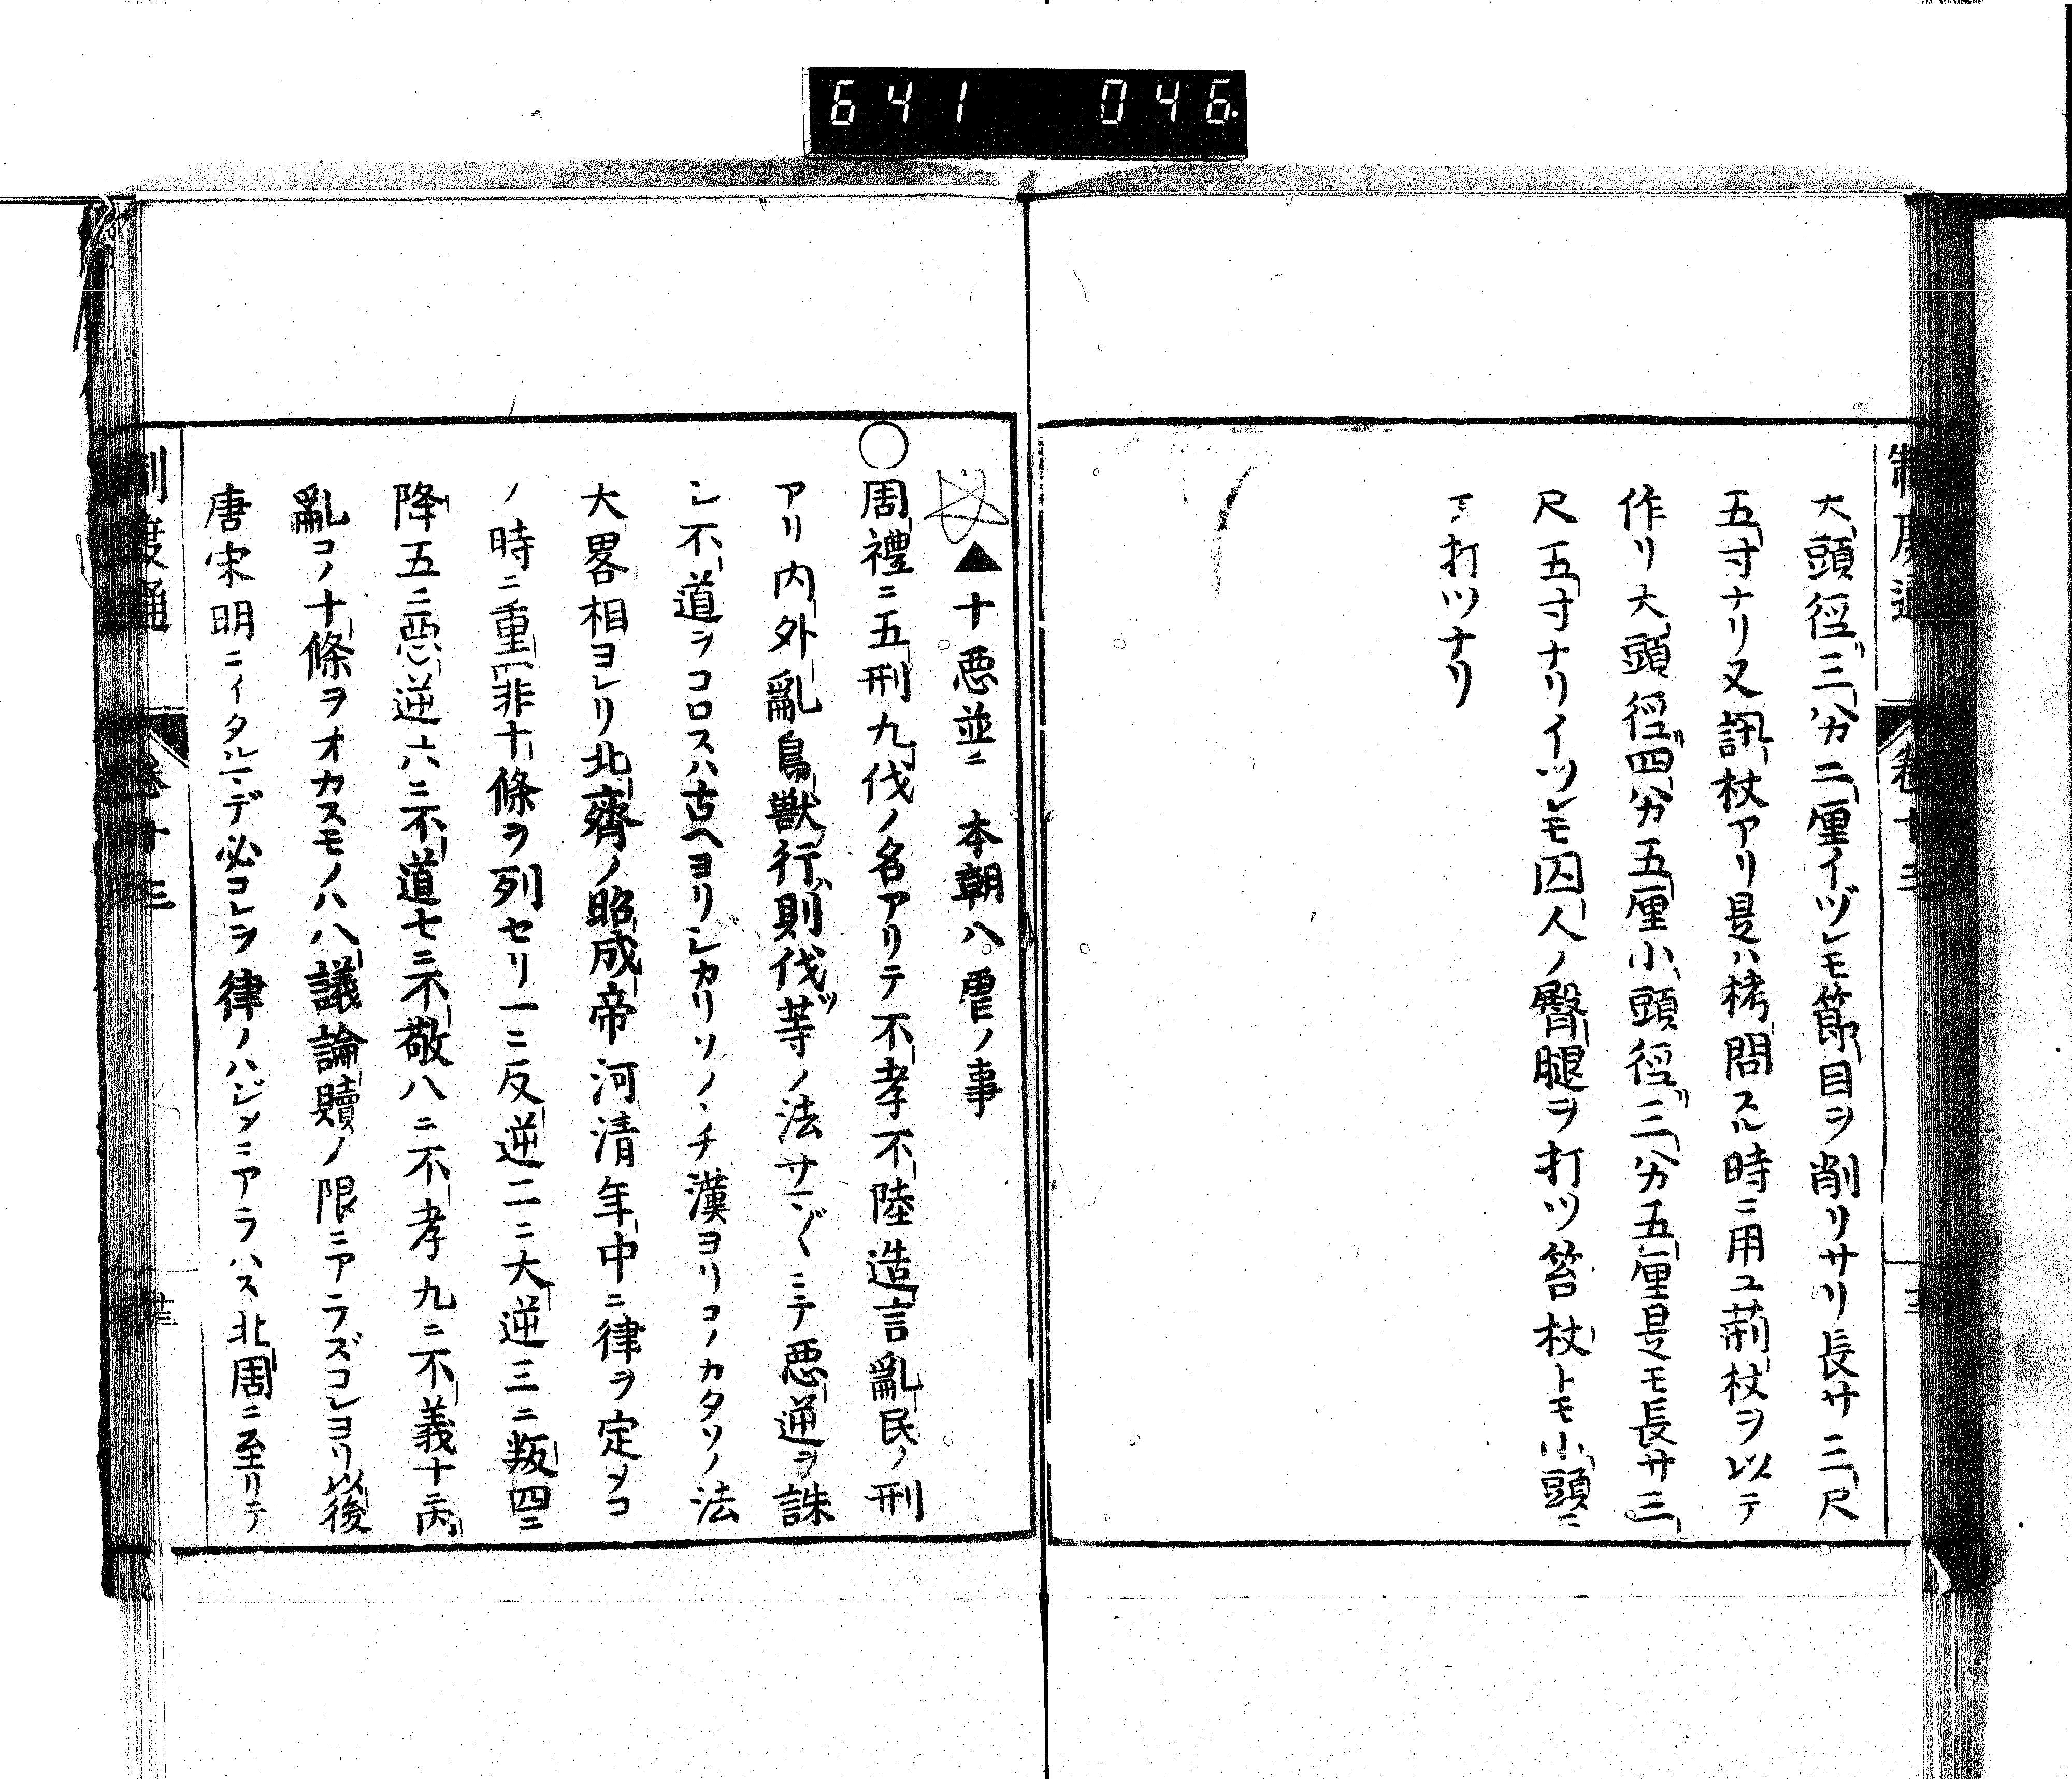 641 046
大頭徑三分二厘イヅレモ節目ヲ削リサリ長サ三尺
五寸ナリ又訊杖アリ是ハ栲問スル時ニ用ユ荊杖ヲ以テ
作リ大頭徑四分五厘小頭徑三分五厘是モ長サ三
尺五寸ナリイツレモ囚人ノ臀腿ヲ打ツ笞杖トモ小頭ニ
テ打ツナリ
▲十悪並ニ 本朝八虐ノ事
〇周禮ニ五刑九伐ノ名アリテ不孝不陸造言亂民ノ刑
アリ内外亂鳥獣行則伐等ノ法サマ〴〵ニテ悪逆ヲ誅
シ不道ヲコロスハ古ヘヨリシカリソノヽチ漢ヨリコノカタソノ法
大畧相ヨレリ北齊ノ昭成帝河清年中ニ律ヲ定メコ
ノ時ニ重罪十條ヲ列セリ一ニ反逆二ニ大逆三ニ叛四ニ
降五ニ惡逆六ニ不道七ニ不敬八ニ不孝九ニ不義十ニ内
亂コノ十條ヲオカスモノハ八議論贖ノ限ニアラズコレヨリ以後
唐宋明ニイタルマデ必コレヲ律ノハジメニアラハス北周ニ至リテ
制度通 卷十三